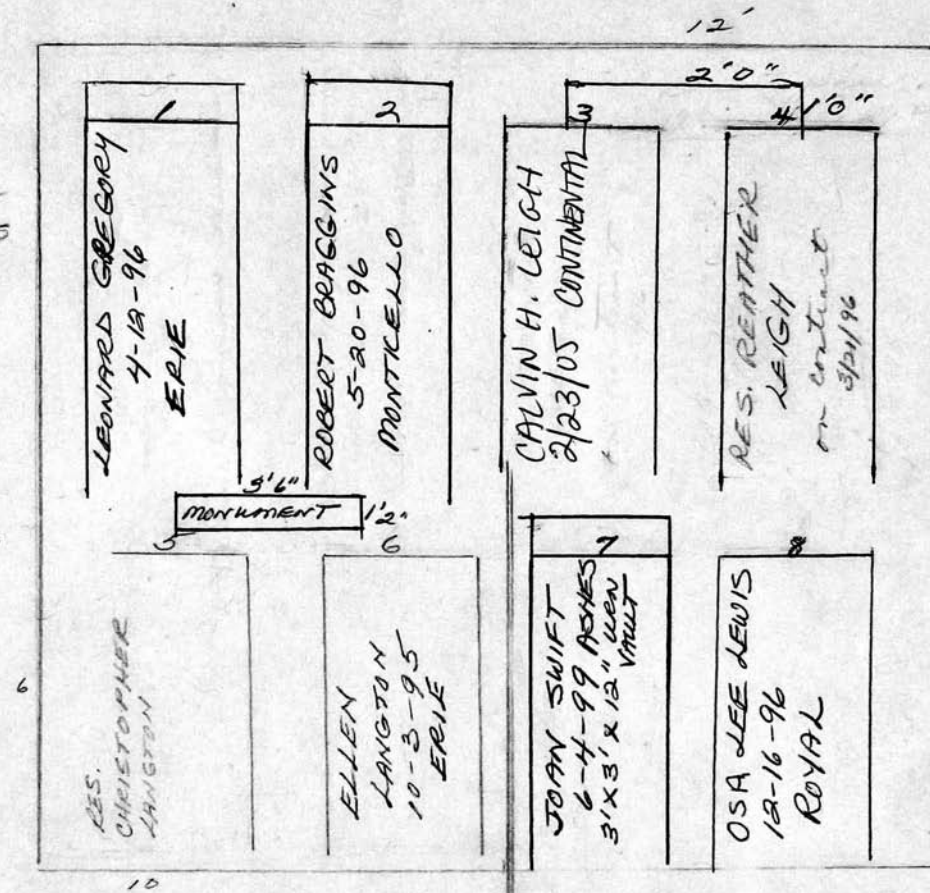 12'
2'0"
1'0"
1
LEONARD GREGORY
4-12-96
ERIE
2
ROBERT BRAGGINS
5-20-96
MONTICELLO
3
CALVIN H. LEIGH
2/23/05 CONTINENTAL
4
RES. REATHER
LEIGH
on contract
3/21/96
3'6"
MONUMENT
1'2"
5
RES.
CHRISTOPHER
LANGTON
6
ELLEN
LANGTON
10-3-95
ERIE
7
JOAN SWIFT
6-4-99 ASHES
3'X3'X12" URN
VAULT
8
OSA LEE LEWIS
12-16-96
ROYAL
10